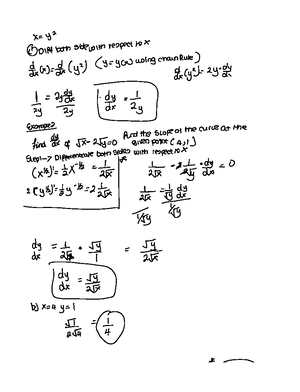 x = y²
① Diff both side with respect to x
d/dx (x) = d/dx (y²) (y = y(x) using chain Rule)
d/dx (y²) = 2y · dy/dx
1/2y = 2y dy/dx / 2y
dy/dx = 1/2y
Example 2
find dy/dx of √x - 2√y = 0 And the Slope of the curve at the given point (4,1)
Step 1 → Differentiate both sides with respect to x
(x^1/2)' = 1/2 x^-1/2 = 1/2√x
1/2√x - 2 · 1/2√y · dy/dx = 0
1/2√x = 1/√y dy/dx
1/√y 1/√y
dy/dx = 1/2√x · √y/1 = √y/2√x
dy/dx = √y/2√x
b) x = 4 y = 1
√1/2√4 = 1/4